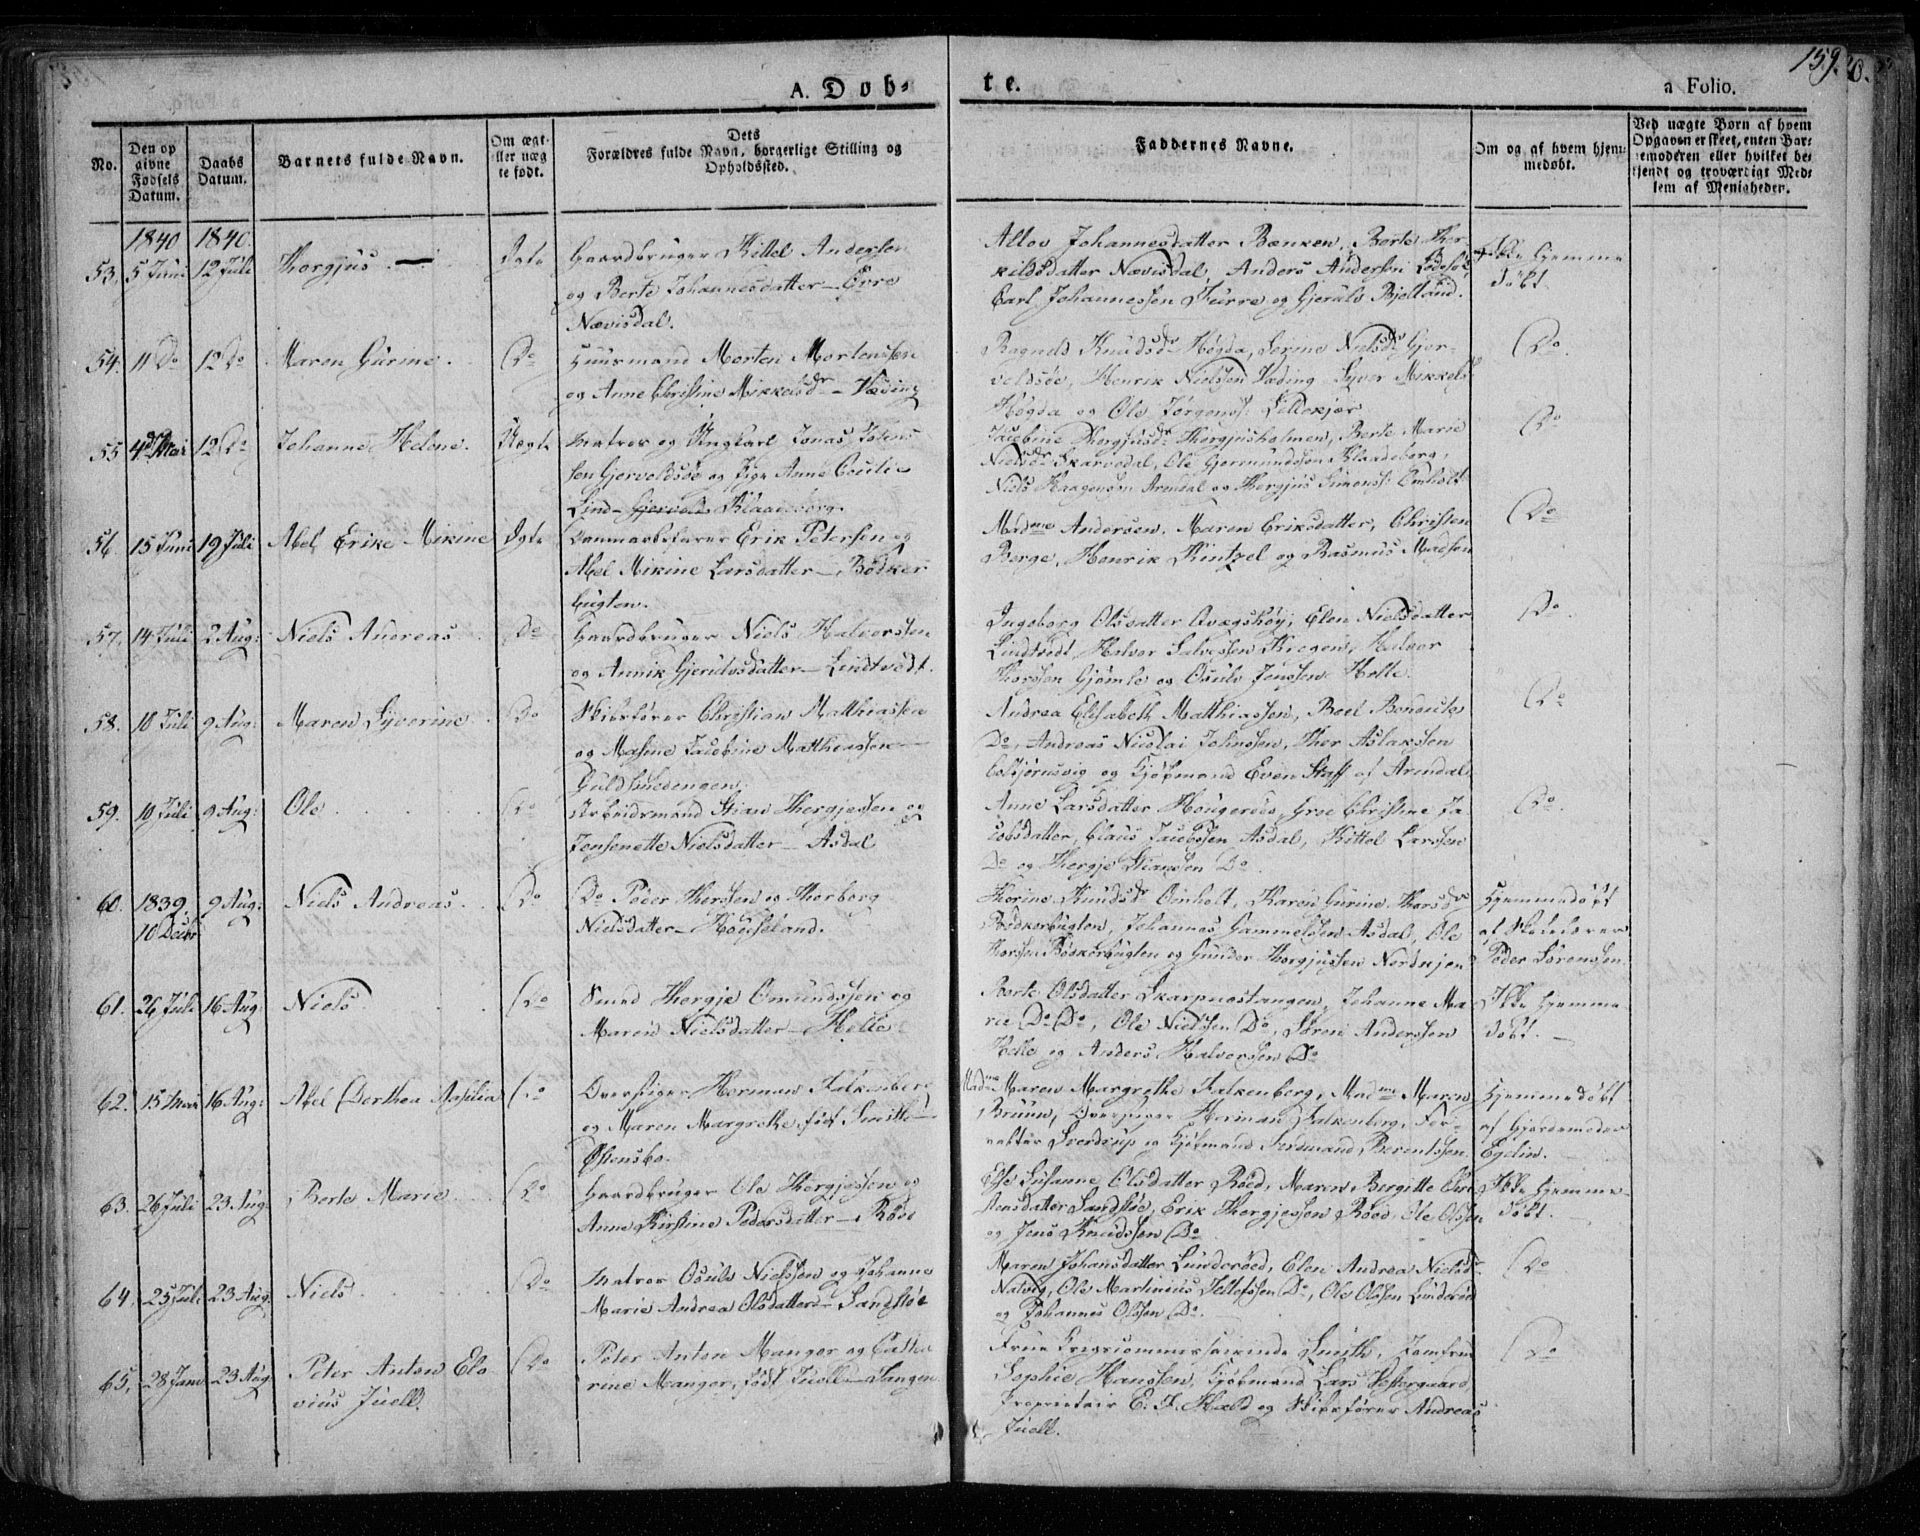 159.
A. Døb-
te.
a Folio.
No.
Den op
givne
Fødsels
Datum.
Daabs
Datum.
Barnets fulde Navn.
Om ægt-
eller uæg
te født.
Dets
Forældres fulde Navn, borgerlige Stilling og
Opholdssted.
Faddernes Navne.
Om og af hvem hjem-
medøbt.
Ved uægte Børn af hvem
Opgaven er skeet, enten Bar-
nemoderen eller hvilket be-
kjendt og troværdigt Med-
lem af Menigheden.
1840 1840.
53. 5 Juni 12 Juli Thorgjus Ægte
Gaardbruger Kittel Andersen
og Berte Johannesdatter - Øvre
Nævisdal.
Johannesdatter Bænken, Berte Thor-
kildsdatter Nævisdal, Anders Andersen
Carl Johannessen Furre og Gjerulv Bjelland.
Ikke hjemme
døbt.
54. 11 Do 12 Do Maren Gurine. Do
Huusmand Morten Mortensen
og Anne Christine Mikkelsdr - Væding
Ragnild Knudsdr Høgda, Serine Nielsdr Gjer-
veldsøe, Henrik Nielsen Væding Syver Mikkels
Høgda og Ole Jørgens:
Do
55 4de Mai 12 Do Johanne Helene. Uægte
Matros og Ungkarl Jonas Johns
sen Gjerveldsøe og Pige Anne Cecilie
Lind - Klaadeborg.
Jacobine Thorgjusdr Thorgjusholmen, Berte Marie
Nielsdr Skarvedal, Ole Gjermundssen Klaadeborg,
Niels Haagensen Arendal og Thorgjus Simons: Omholt
Do
56. 15 Juni 19 Juli Abel Erike Mikine Ægte
Dammarbefarer Erik Petersen og
Abel Mikine Larsdatter - Bødker
bugten.
Madme Andersen, Maren Eriksdatter, Christen
Berge, Henrik Kintzel og Rasmus Madsen
Do
57. 14 Juli 2 Aug: Niels Andreas Do
Gaardbruger Niels Halvorssen
og Annik Gjerulvsdatter - Lindtvedt.
Ingeborg Olsdatter Qvægshøy, Elen Nielsdatter
Lindtvedt, Halvor Salvessen Kregen, Halvor
Thorssen Gjømle og Osuld Jenssen Helle.
Do.
58. 10 Juli 9 Aug: Maren Syverine. Do
Skibsfører Christian Matthiassen
og Masine Jacobine Matthiassen -
Guldsmedengen.
Andrea Elisabeth Matthiassen, Boel Benedicte
Do, Andreas Nicolai Johnssen, Thor Aslakssen
Colbjørnsvig og Kjøbmand Even Staff af Arendal
Do
59. 10 Juli 9 Aug: Ole Do
Arbeidsmand Stian Thorgjessen og
Jensenette Nielsdatter - Asdal
Anne Larsdatter Hougerøes, Groe Christine Ja
cobsdatter, Claus Jacobssen Asdal, Kittel Larssen
Do og Thorgje Stianssen Do.
Do
60. 1839 9 Aug: Niels Andreas Do
10 Decbr
Do Peder Thorssen og Thorborg
Nielsdatter - Houseland.
Thorine Knudsdr Omholt, Karen Gurine Thorsdr
Bødkerbugten, Johannes Gammelssen Asdal, Ole
Thorsen Bødkerbugten og Gunder Thorgjussen Nordkjen
Hjemmedøbt
af Skolelærer
Peder Sørensen.
61. 26 Juli 16 Aug: Niels Do
Smed Thorgje Omundssen og
Maren Nielsdatter - Helle
Berte Olsdatter Skarpnestangen, Johanne Ma
rie Do Do, Ole Nielssen Do, Søren Anderssen
Helle og Anders Halvorssen Do
Ikke hjemme
døbt.
62. 15 Mai 16 Aug: Abel Dorthea Do
Overstiger Herman Falkenberg
og Maren Margrethe, født Smith -
Østensbo.
Madme Maren Margrethe Falkenberg, Madme Maren
Bruun, Overstiger Herman Falkenberg, For-
valter Sverdrup og Kjøbmand Ferdinand Berentssen.
Hjemmedøbt
af Gjordemoder
Egelin.
63. 26 Juli 23 Aug: Berte Marie Do
Gaardbruger Ole Thorgjessen og
Anne Kirstine Pedersdatter - Røed
Else Susanne Olsdatter Røed, Maren Bergitte Chri
stensdatter Sandstøe, Erik Thorgjessen Røed, Ole Olssen
og Jens Knudssen Do
Ikke hjemme-
døbt.
64. 25 Juli 23 Aug: Niels Do
Matros Osuld Nielssen og Johanne
Marie Andrea Olsdatter - Sandstøe
Maren Johansdatter Lunderøed, Elen Andrea Nielsdr
Natvig, Ole Martinius Tellefssen Do, Ole Olssen Lunderøed
og Johannes Olssen Do.
Do
65. 28 Janu 23 Aug: Peter Anton Clo
vius Juell. Do
Peter Anton Manger og Catha
rine Manger, født Juell - Sangen
Frue Krigscommissairinde Smith, Jomfru
Sophie Hanssen, Kjøbmand Lars Østergaard,
Proprietair E. F. Hald og Skibsfører Andreas
Juell.
Do